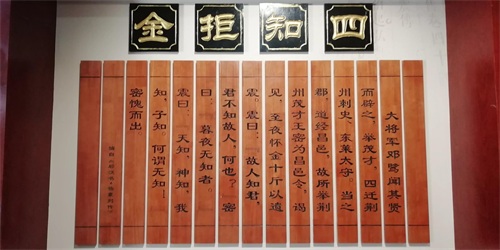 四知拒金
大将军邓骘闻其贤
而辟之，举茂才，四迁荆
州刺史、东莱太守。当之
郡，道经昌邑，故所举荆
州茂才王密为昌邑令，谒
见，至夜怀金十斤以遗
震。震曰：“故人知君，
君不知故人，何也？”密
曰：“暮夜无知者。”
震曰：“天知，神知，我
知，子知。何谓无知！”
密愧而出
摘自《后汉书·杨震列传》